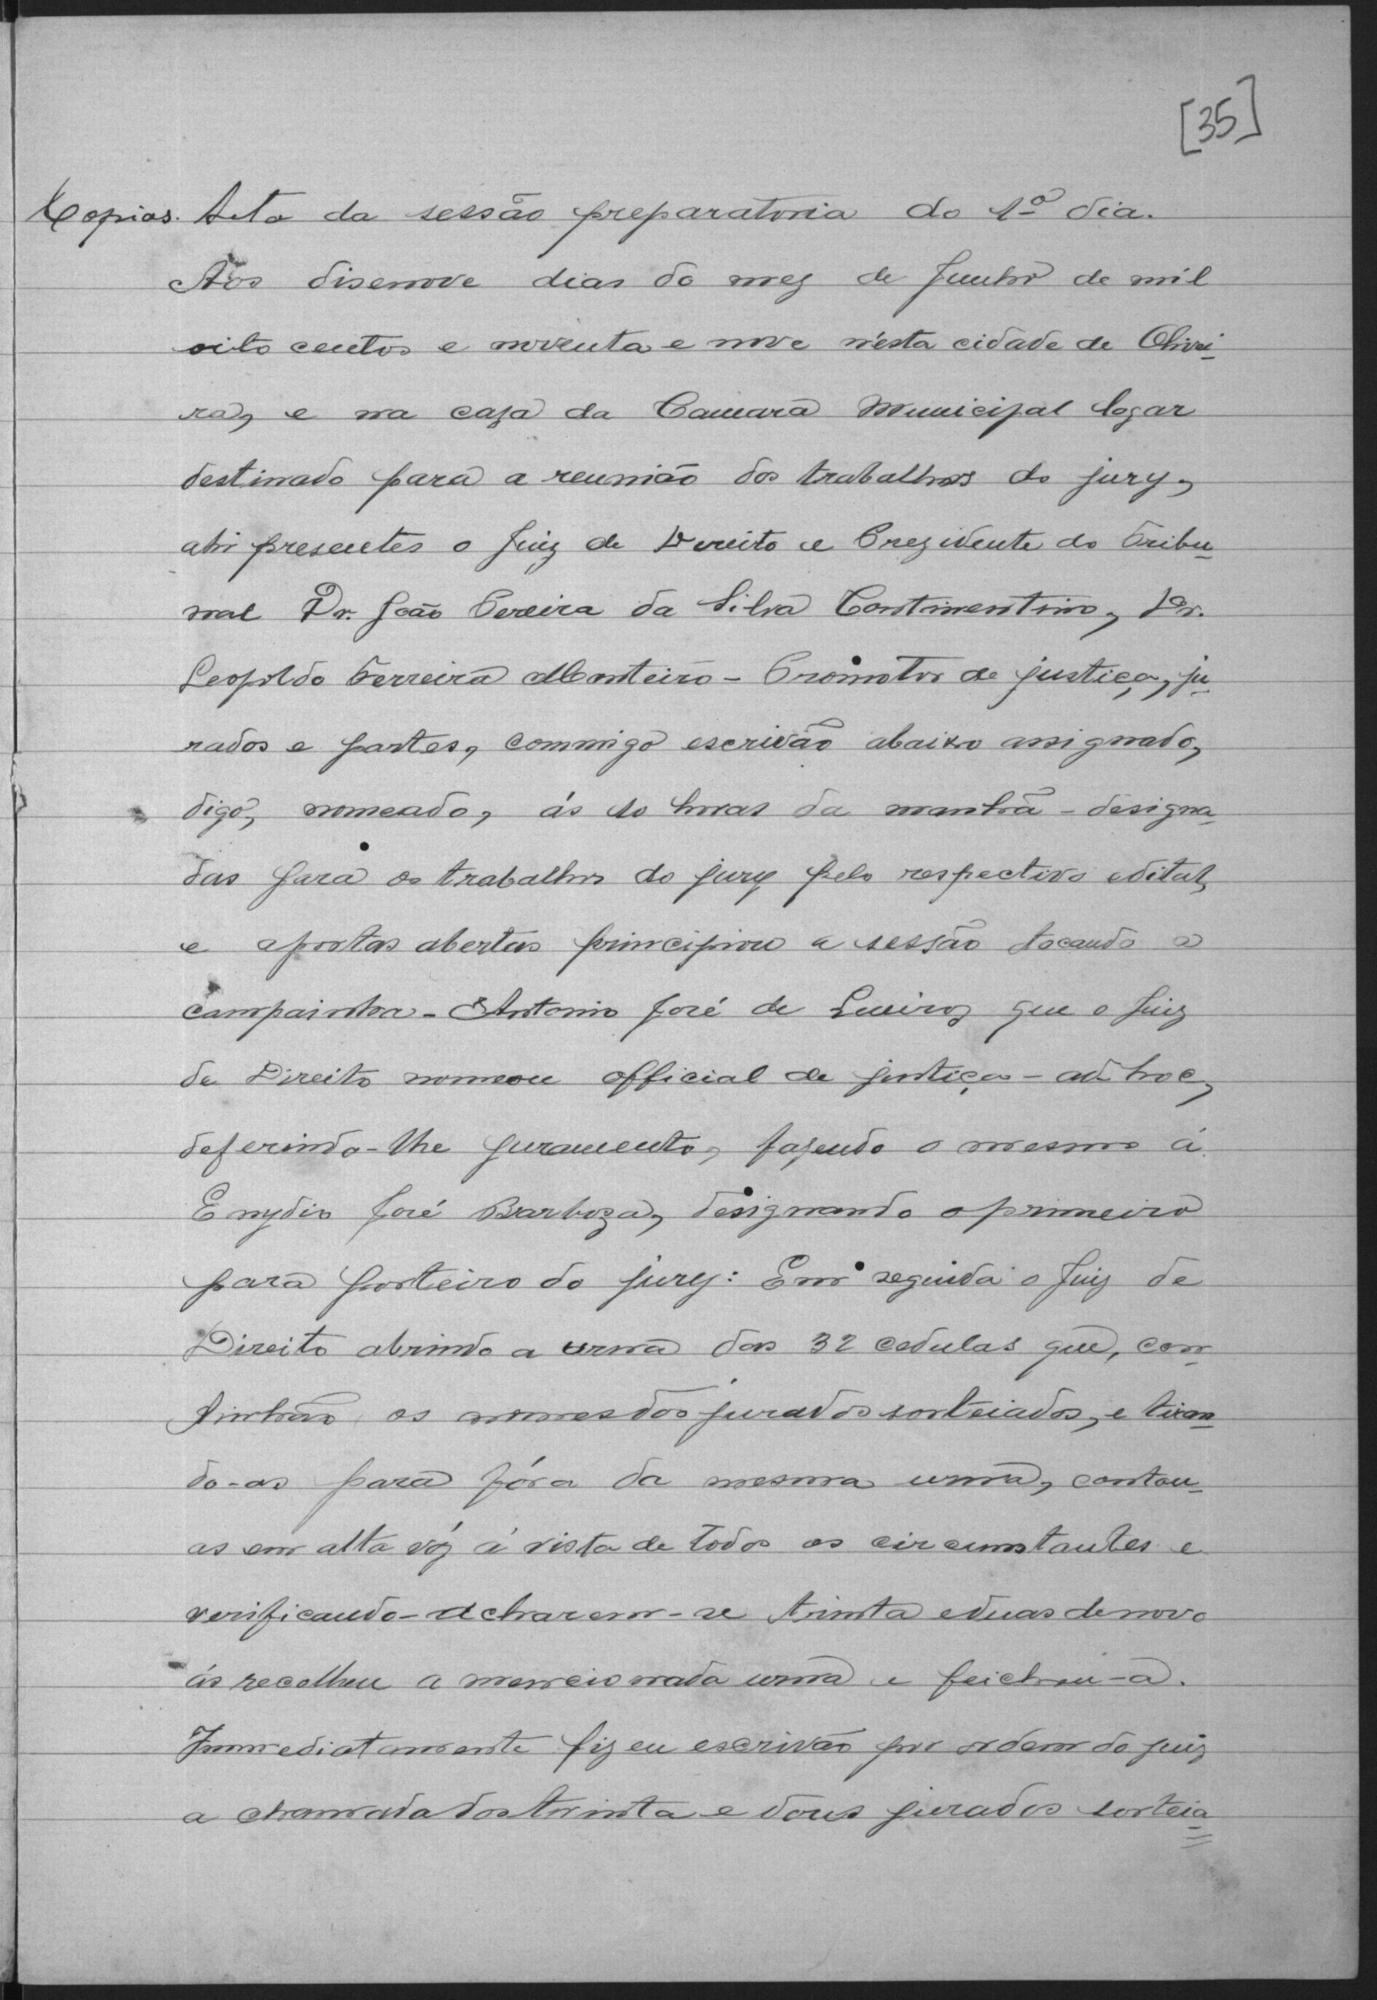 [35]
Copias. Acta da sessão preparatoria do 1º dia.
Aos disenove dias do mez de Junho de mil
oito centos e noventa e nove n'esta cidade de Olivei-
ra, e na caza da Camara Municipal logar
destinado para a reunião dos trabalhos do jury,
ahi presentes o Juiz de Direito e Prezidente do Tribu-
nal Dr. João Pereira da Silva Continentino, Dr.
Leopoldo Ferreira Monteiro - Promotor de justiça, ju-
rados e partes, commigo escrivão abaixo assignado,
digo, nomeado, ás 10 horas da manhã - designa-
das para os trabalhos do jury pelo respectivo edital,
e aportas abertas principiou a sessão tocando a
campainha - Antonio José de Queiroz que o Juiz
de Direito nomeou official de justiça - ad hoc,
deferindo-lhe juramento, fazendo o mesmo á
Enydio José Barboza, designando o primeiro
para porteiro do jury: Em seguida o Juiz de
Direito abrindo a urna das 32 cedulas que, con-
tinhão os nomes dos jurados sorteiados, e tiran-
do-as para fóra da mesma urna, contou-
as em alta vóz á vista de todos os circumstantes e
verificando-acharem-se trinta eduas denovo
ás recolheu a mencionada urna e feichou-a.
Immediatamente fiz eu escrivão por ordem do juiz
a chamada dos trinta e dous jurados sorteia-